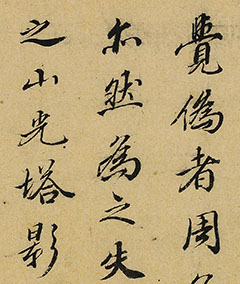 覺偽者周
亦然為之失
之山光塔影